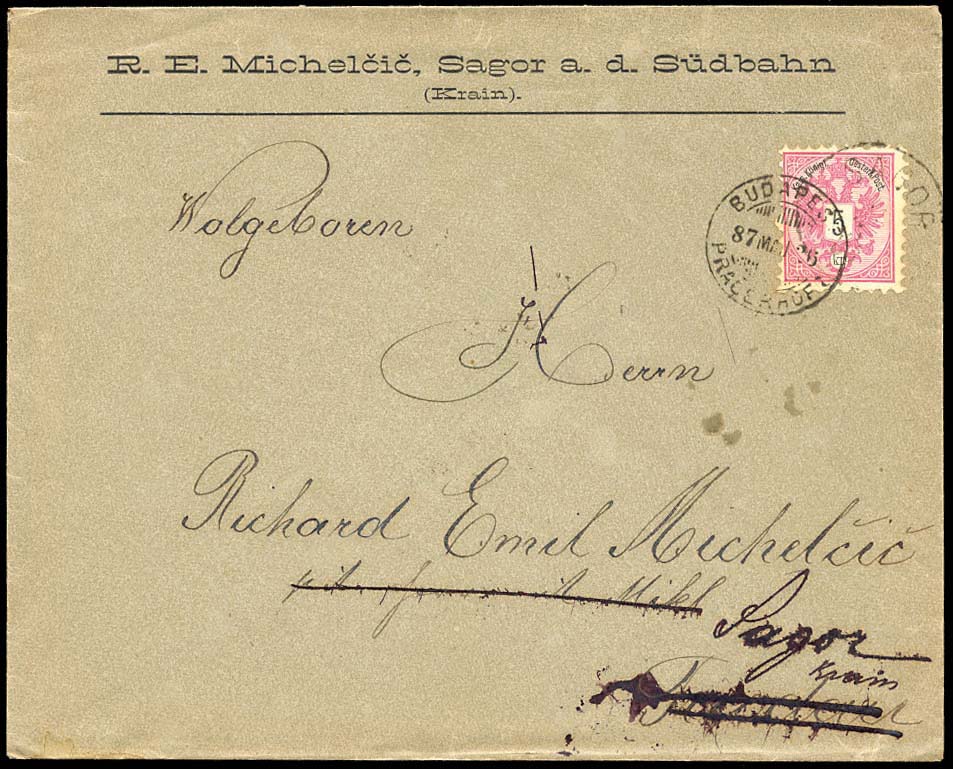 R. E. Michelčič, Sagor a. d. Südbahn
(Krain).
Wolgeboren
Herrn
Richard Emil Michelčič
Sagor
Krain
BUDAPEST
87 MAJ 26
PRAGERHOF
5
SAGOR